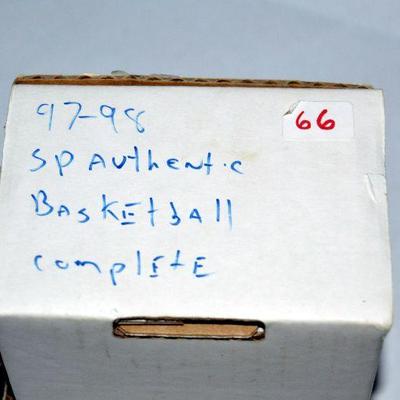 97-98
66
SP Authentic
BASKEtbAll
complEtE